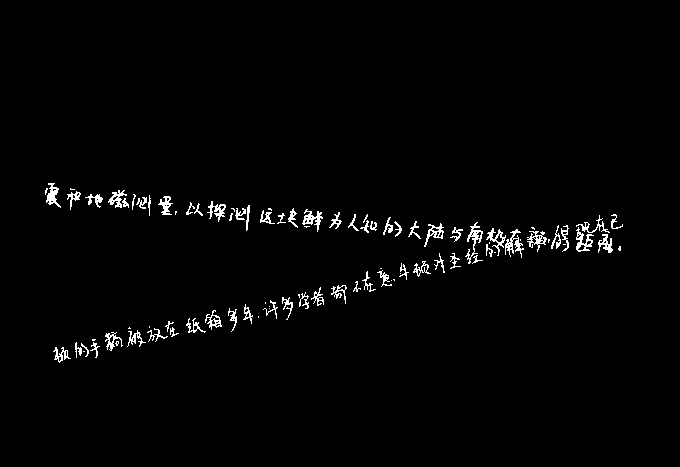 震和地磁测量,以探测这块鲜为人知的大陆与南极的距离。
顿的手稿被放在纸箱多年,许多学者都不在意,牛顿对圣经的解释,现在已